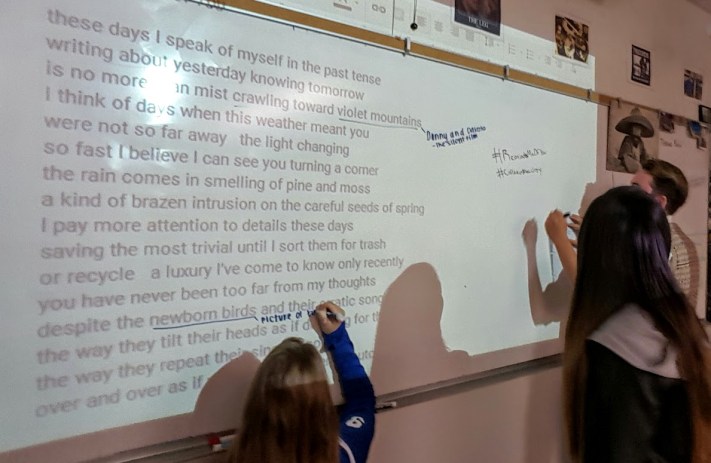 these days I speak of myself in the past tense
writing about yesterday knowing tomorrow
is no more mist crawling toward violet mountains
I think of days when this weather meant you
were not so far away the light changing
so fast I believe I can see you turning a corner
the rain comes in smelling of pine and moss
a kind of brazen intrusion on the careful seeds of spring
I pay more attention to details these days
saving the most trivial until I sort them for trash
or recycle a luxury I've come to know only recently
you have never been too far from my thoughts
despite the newborn birds and their song
picture of
the way they tilt their heads as if
the way they repeat their
over and over as if
Danny and